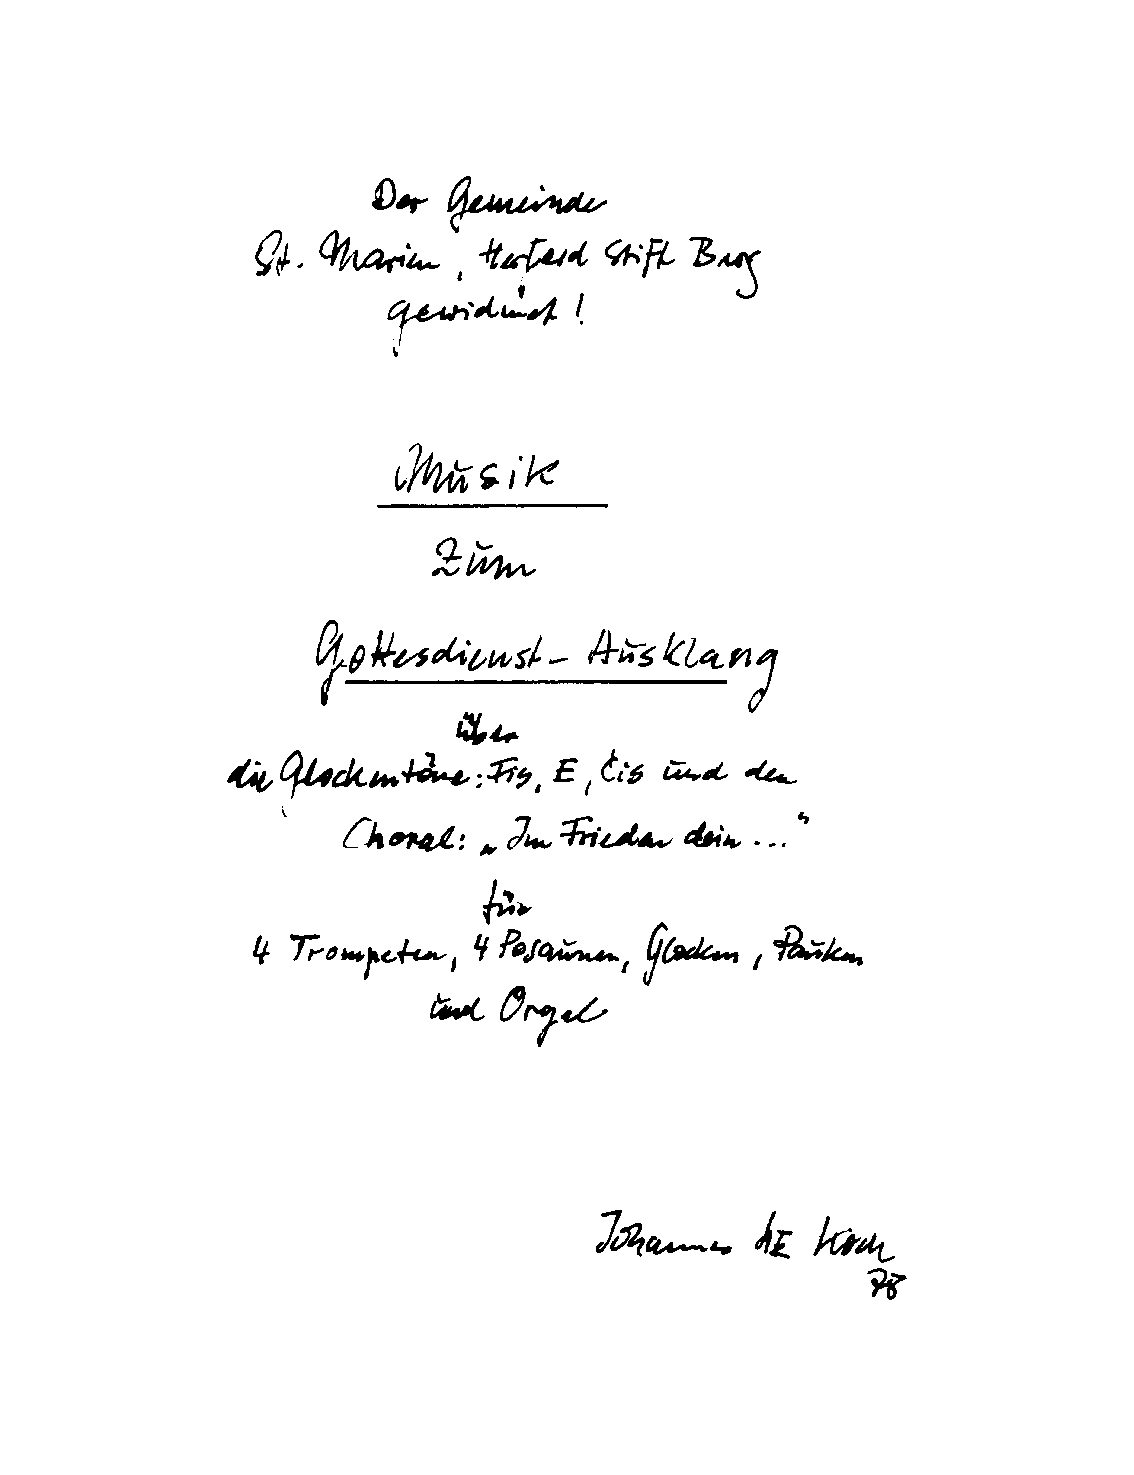 Der Gemeinde
St. Marien, Herford Stift Berg
gewidmet!
Musik
zum
Gottesdienst-Ausklang
über
die Glockentöne: Fis, E, Cis und den
Choral: „Im Frieden dein..."
für
4 Trompeten, 4 Posaunen, Glocken, Pauken
und Orgel
Johannes H E Koch
78